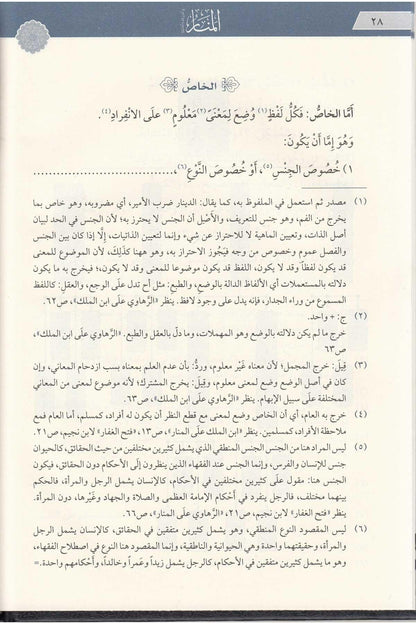 ٢٨
المنار
الخاص
أَمَّا الخَاصُّ: فَكُلُّ لَفْظٍ(١) وُضِعَ لِمَعْنىً(٢) مَعْلُومٍ(٣) علَى الانْفِرادِ(٤).
وَهُوَ إِمَّا أَنْ يَكُونَ:
١) خُصُوصَ الجِنْسِ(٥)، أَوْ خُصُوصَ النَّوْعِ(٦)، ........................
(١) مصدر ثم استعمل في الملفوظ به، كما يقال: الدينار ضرب الأمير، أي مضروبه، وهو خاص بما
يخرج من الفم، وهو جنس للتعريف، والأصل أن الجنس لا يحترز به؛ لأن الجنس في الحد لبيان
أصل الذات، وتعيين الماهية لا للاحتراز عن شيء وإنما لتعيين الذاتيات، إلَّا إذا كان بين الجنس
والفصل عموم وخصوص من وجه فيَجُوز الاحتراز به، وهو ههنا كذَلِكَ، لأن الموضوع للمعنى
قد يكون لفظاً وقد لا يكون، اللفظ قد يكون موضوعا للمعنى وقد لا يكون؛ فيخرج به ما يكون
دلالته بالمستعملات أي الألفاظ الدالة بالوضع، والطبع: مثل أح تدل علَى الوجع، والعقل: كاللفظ
المسموع من وراء الجدار، فإنه يدل علَى وجود لافظ. ينظر «الرَّهاوي علَى ابن الملك»، ص٦٢.
(٢) ج: + واحد.
خرج ما لم يكن دلالته بالوضع وهو المهملات، وما دلّ بالعقل والطبع. «الرهاوي علَى ابن الملك»،
ص٦٣
(٣) قِيلَ: خرج المجمل؛ لأن معناه غَير معلوم، وردُّ: بأن عدم العلم بمعناه بسب ازدحام المعاني، وإن
كان في أصل الوضع وضع لمعنى معلوم، وقِيلَ: يخرج المشترك؛ لأنه موضوع لمعنى من المعاني
المختلفة علَى سبيل الإبهام. ينظر «الرهاوي علَى ابن الملك»، ص٦٣.
(٤) خرج به العام، أي أن الخاص وضع لمعنى مع قطع النظر أن يكون له أفراد، كمسلم، أما العام فمع
ملاحظة الأفراد، كمسلمين. ينظر «ابن الملك علَى المنار»، ص١٣، «فتح الغفار» لابن نجيم، ص٢١.
(٥) ليس المراد هنا من الجنس الجنس المنطقي الذي يشمل كثيرين مختلفين من حيث الحقائق، كالحيوان
جنس للإنسان والفرس، وإنما الجنس عند الفقهاء الذين ينظرون إلَى الأحكام دون الحقائق، فيكون
الجنس هنا: مقول علَى كثيرين مختلفين في الأحكام، كالإنسان يشمل الرجل والمرأة، فالحكم
بينهما مختلف، فالرجل ينفرد في أَحْكام الإمامة العظمى والصلاة والجهاد وغَيْرها، دون المرأة.
ينظر «فتح الغفار» لابن نجيم، ص٢١، «الرَّهاوي علَى المنار»، ص٦٦.
(٦) ليس المقصود النوع المنطقي، وهو يشمل كثيرين متفقين في الحقائق، كالإنسان يشمل الرجل
والمرأة، وحقيقتهما واحدة وهي الحيوانية والناطقية، وإنما المقصود هنا النوع في اصطلاح الفقهاء،
وهو ما يشمل كثيرين متفقين في الأحكام، كالرجل يشمل زيداً وعَمراً وخالداً، وأحكامهم واحدة.=